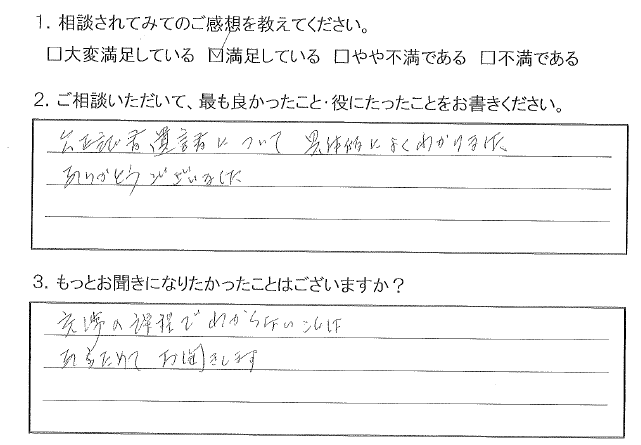 1. 相談されてみてのご感想を教えてください。
□大変満足している ☑満足している □やや不満である □不満である
2. ご相談いただいて、最も良かったこと・役にたったことをお書きください。
公正証書遺言書について 具体的によくわかりました
ありがとうございました
3. もっとお聞きになりたかったことはございますか？
実際の課程でわからないことは
あらためて お聞きします